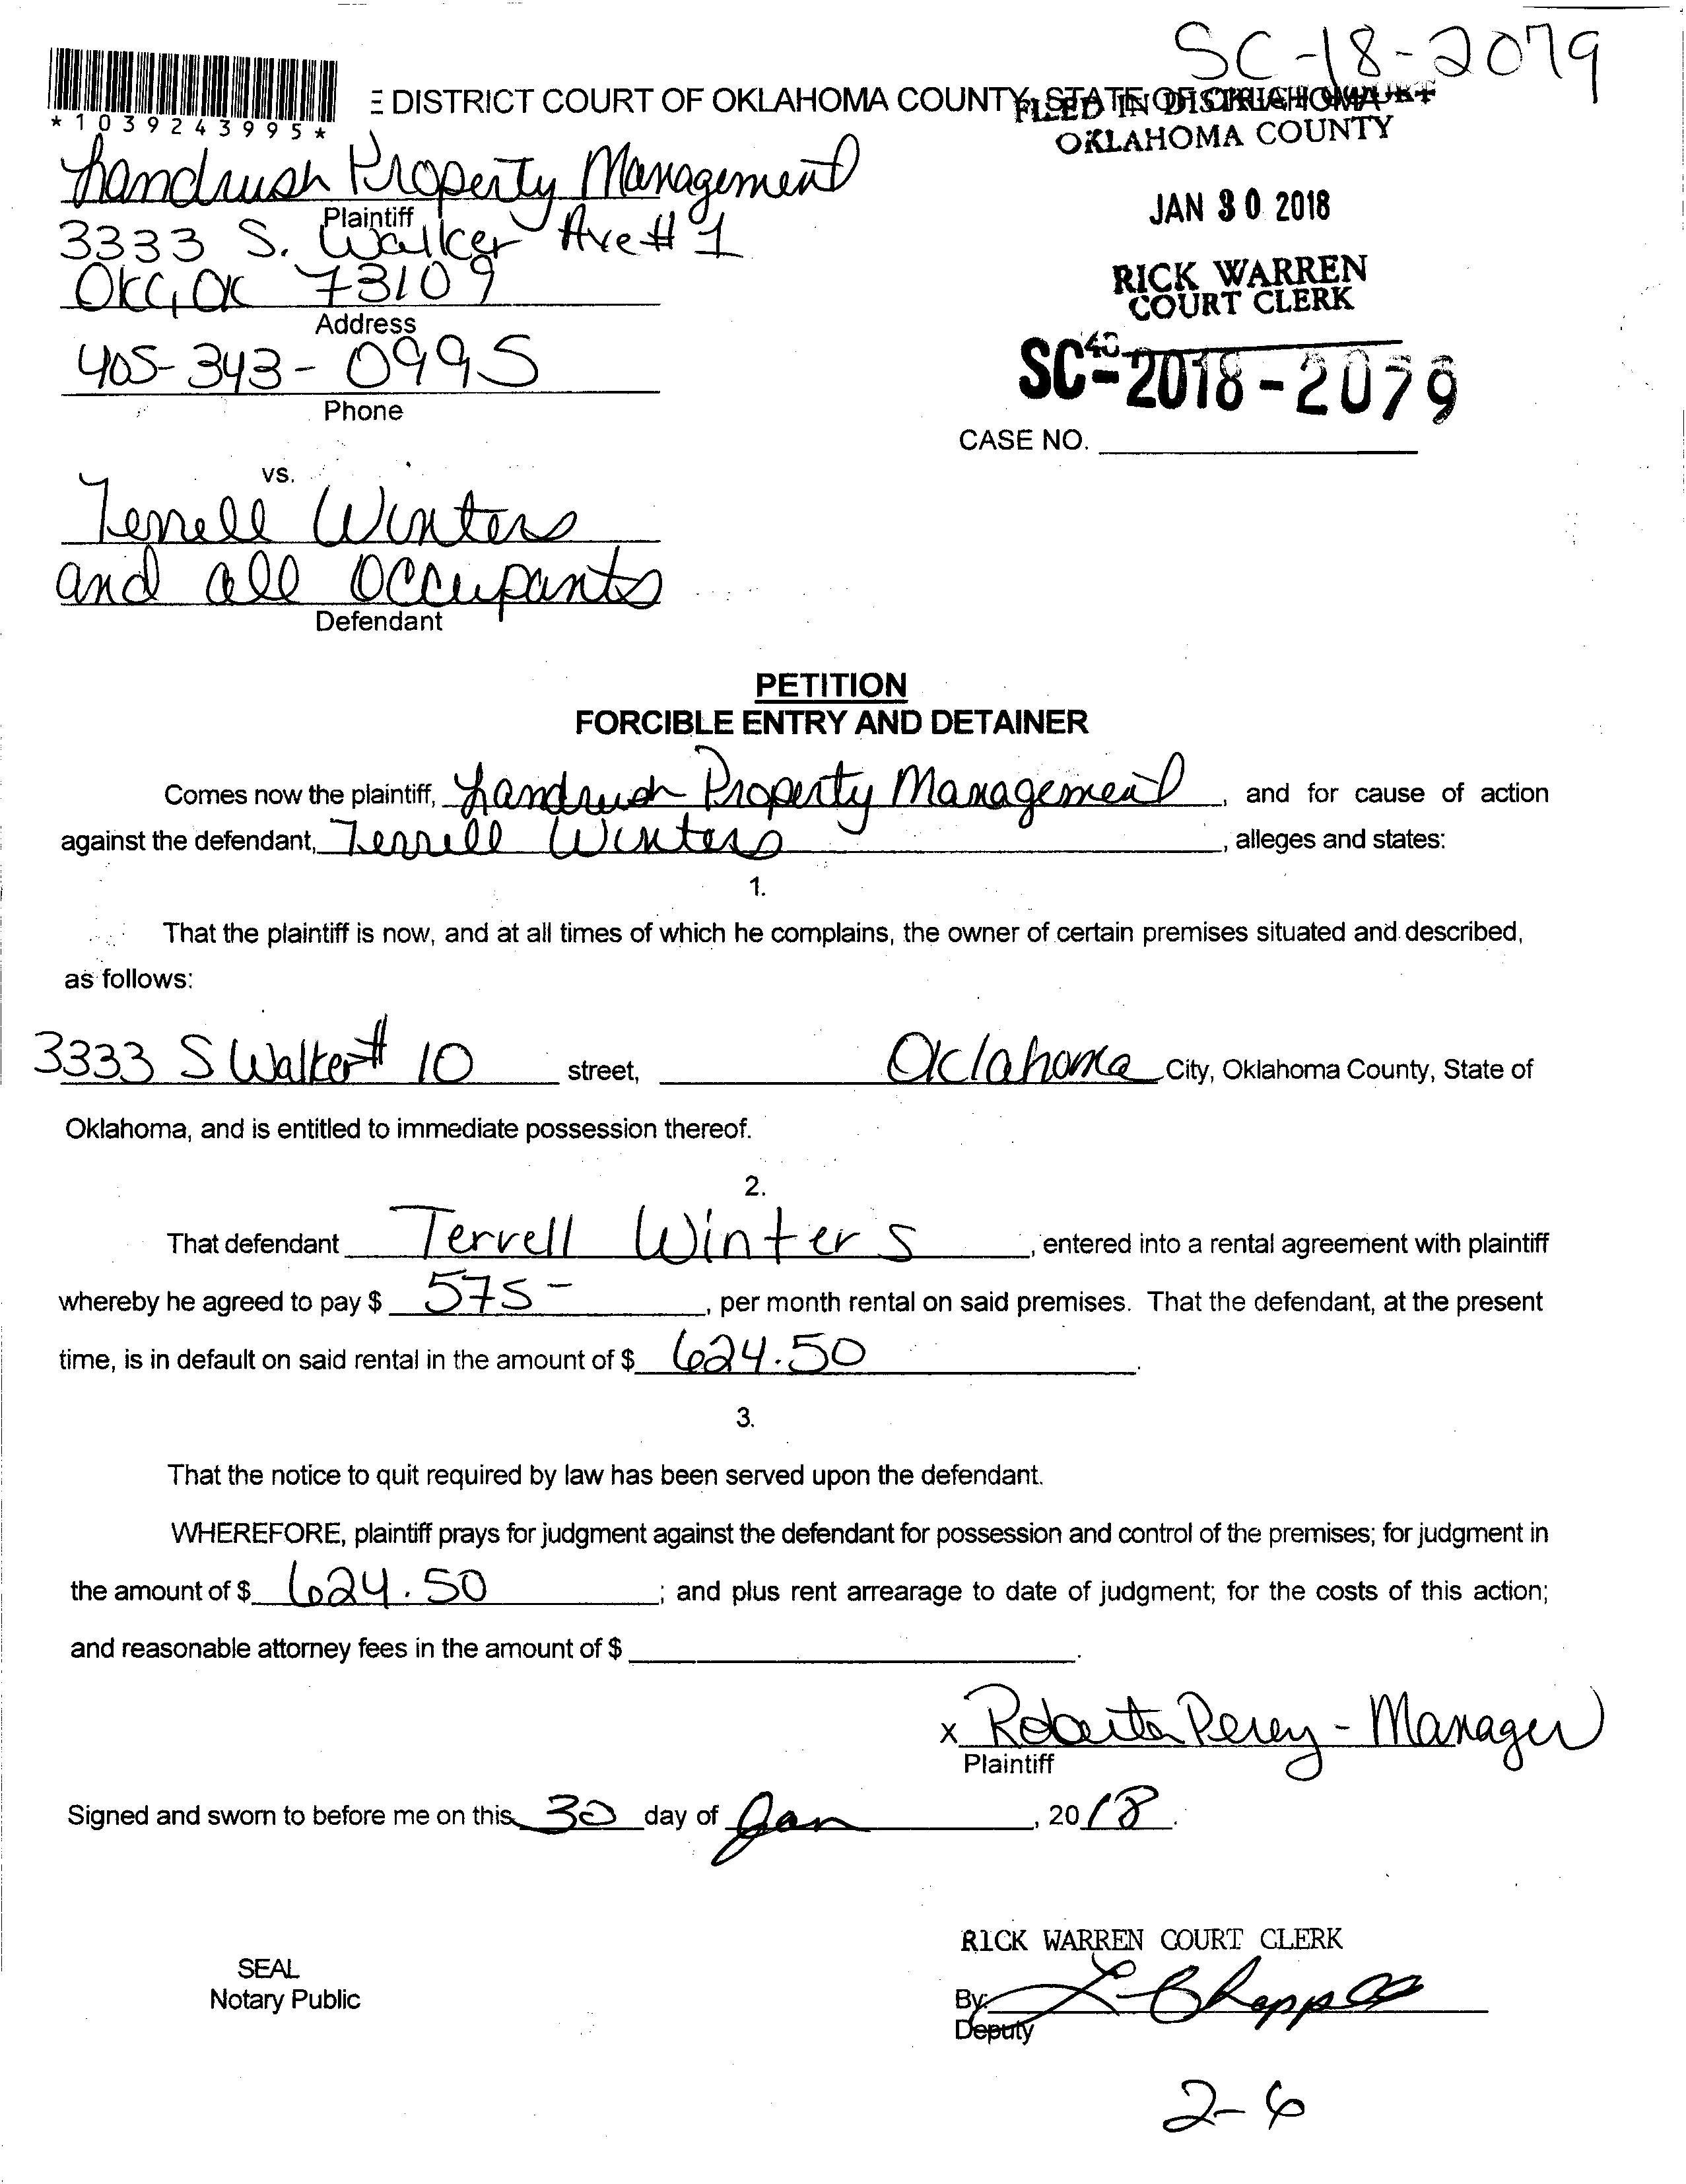 SC-18-2079
*1039243995*
E DISTRICT COURT OF OKLAHOMA COUNTY, STATE OF OKLAHOMA
FILED IN DISTRICT COURT
OKLAHOMA COUNTY
Landrush Property Management
Plaintiff
3333 S. Walker Ave # 1
OKC, OK 73109
Address
405-343-0995
Phone
JAN 30 2018
RICK WARREN
COURT CLERK
SC-2018-2079
CASE NO.
vs.
Terrell Winters
and all Occupants
Defendant
PETITION
FORCIBLE ENTRY AND DETAINER
Comes now the plaintiff, Landrush Property Management, and for cause of action
against the defendant, Terrell Winters, alleges and states:
1.
That the plaintiff is now, and at all times of which he complains, the owner of certain premises situated and described,
as follows:
3333 S Walker # 10 street, Oklahoma City, Oklahoma County, State of
Oklahoma, and is entitled to immediate possession thereof.
2.
That defendant Terrell Winters, entered into a rental agreement with plaintiff
whereby he agreed to pay $ 575-, per month rental on said premises. That the defendant, at the present
time, is in default on said rental in the amount of $ 624.50.
3.
That the notice to quit required by law has been served upon the defendant.
WHEREFORE, plaintiff prays for judgment against the defendant for possession and control of the premises; for judgment in
the amount of $ 624.50; and plus rent arrearage to date of judgment; for the costs of this action;
and reasonable attorney fees in the amount of $ .
x Roberta Perey - Manager
Plaintiff
Signed and sworn to before me on this 30 day of Jan, 2018.
RICK WARREN COURT CLERK
SEAL
Notary Public
By:
Deputy
2-6